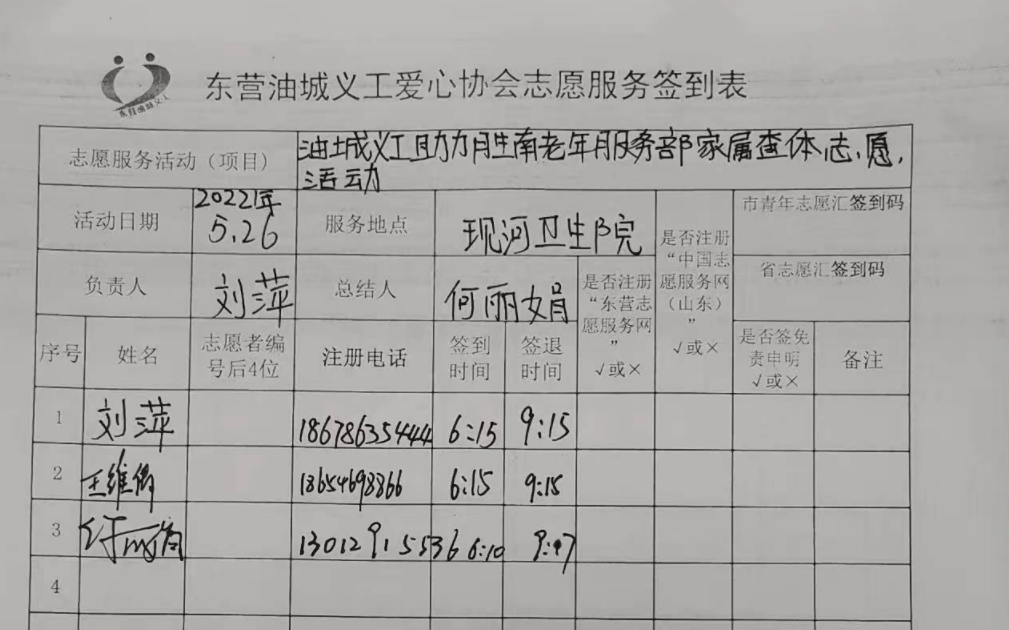 东营油城义工爱心协会志愿服务签到表
志愿服务活动（项目） 油城义工助力胜南老年服务部家属查体志愿，
活动
活动日期 2022年 5.26 服务地点 现河卫生院 是否注册“中国志愿服务网（山东）” √或× 市青年志愿汇签到码
负责人 刘萍 总结人 何丽娟 是否注册“东营志愿服务网” √或× 省志愿汇签到码
序号 姓名 志愿者编号后4位 注册电话 签到时间 签退时间 是否签免责申明 √或× 备注
1 刘萍 18678635444 6:15 9:15
2 王维 6:15 9:15
3 6:10
4